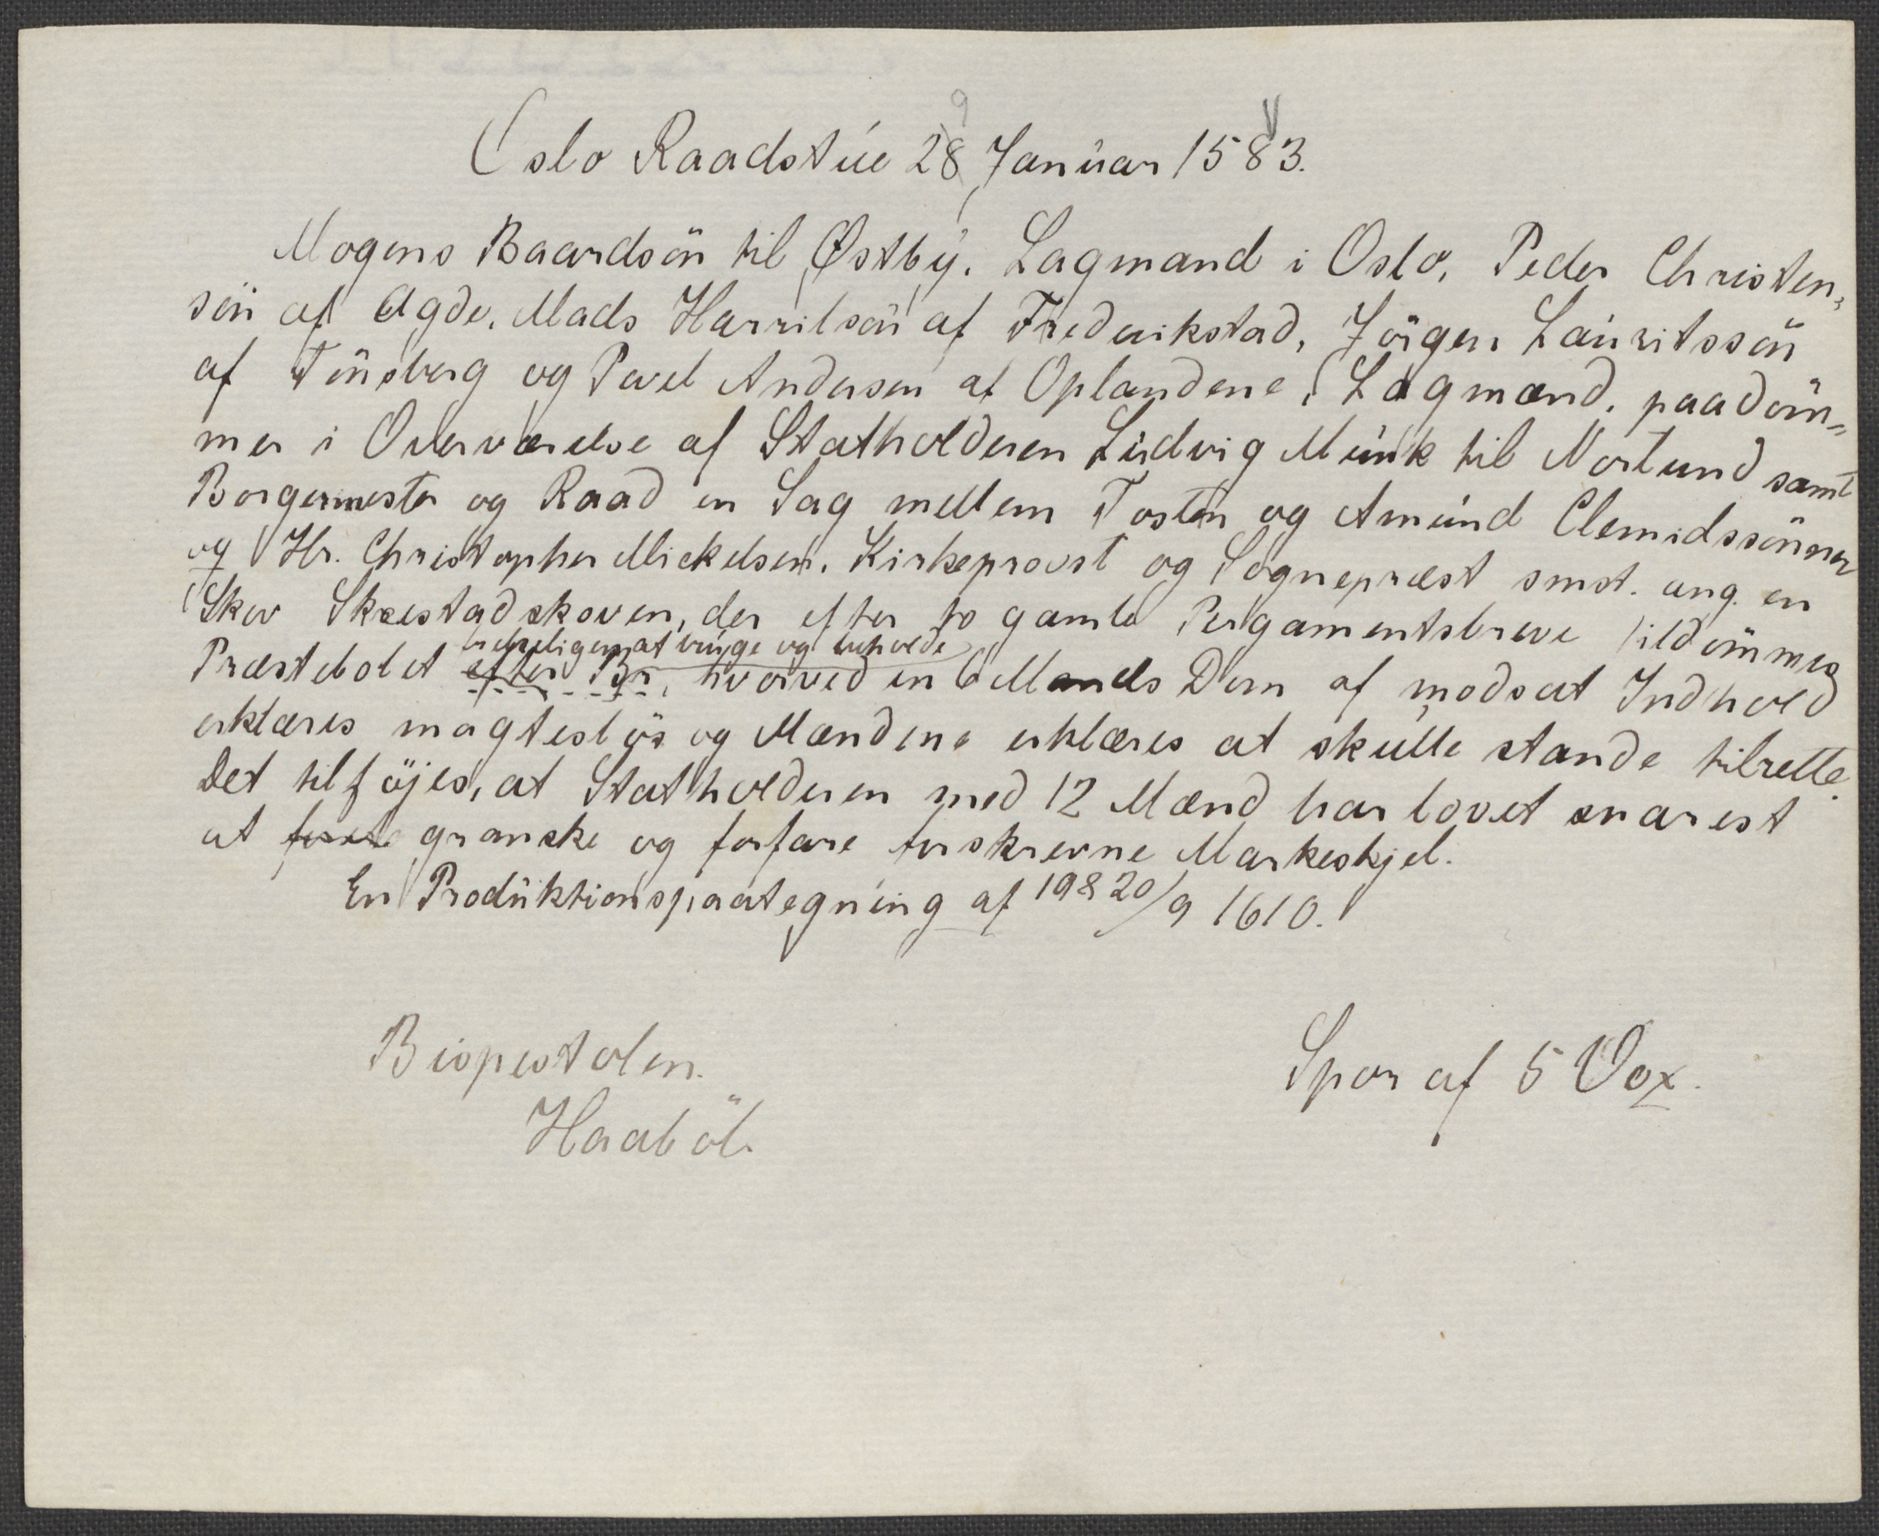 Oslo Raadstue 28 Januar 1583.
Mogens Baardsön til Østby, Lagmand i Oslo, Peder Christen„
sön af Agde, Mads Harrilsön af Frederikstad, Jörgen Lauritssön
af Tönsberg og Povel Andersen af Oplandene, Lagmænd, paadöm„
mer i Overværelse af Statholderen Ludvig Munk til Norlund samt
Borgermester og Raad en Sag mellem Tosten og Amund Clemidssönner
og Hr. Christopher Mickelsen, Kirkeprovst og Sognepræst smst. ang. en
Skov Skrestadskoven, der efter to gamle Pergamentsbreve tildömmes
retteligen at bruge og beholde
Præstebolet efter Br, hvorved en 6 Mands Dom af modsat Indhold
erklæres magteslös og Mændene erklæres at skulle stande tilrette.
Det tilföjes, at Statholderen med 12 Mænd har lovet snarest
at granske og forfare forskrevne Markeskjel.
En Produktionspaategning af 19 & 20/9 1610.
Bispestolen. Spor af 5 Vox.
Haaböl.